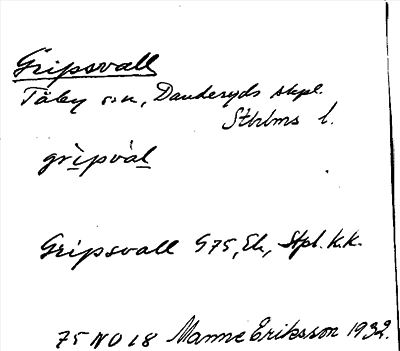 Gripsvall
Täby sn, Danderyds skpl.
Sthlms l.
gripval
Gripsvall G75, Ek, Stpl. K.K.
75 NO 18 Manne Eriksson 1932.